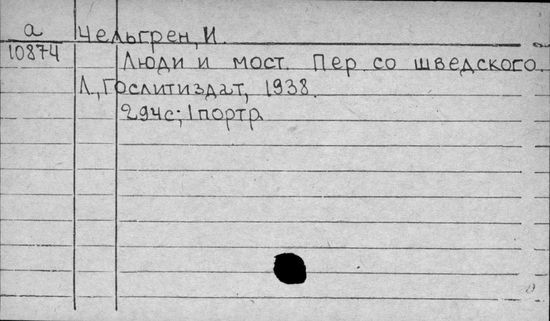 а Чельгрен, И.
10874 Люди и мост. Пер. со шведского.
Л., Гослитиздат, 1938.
294с; 1портр.